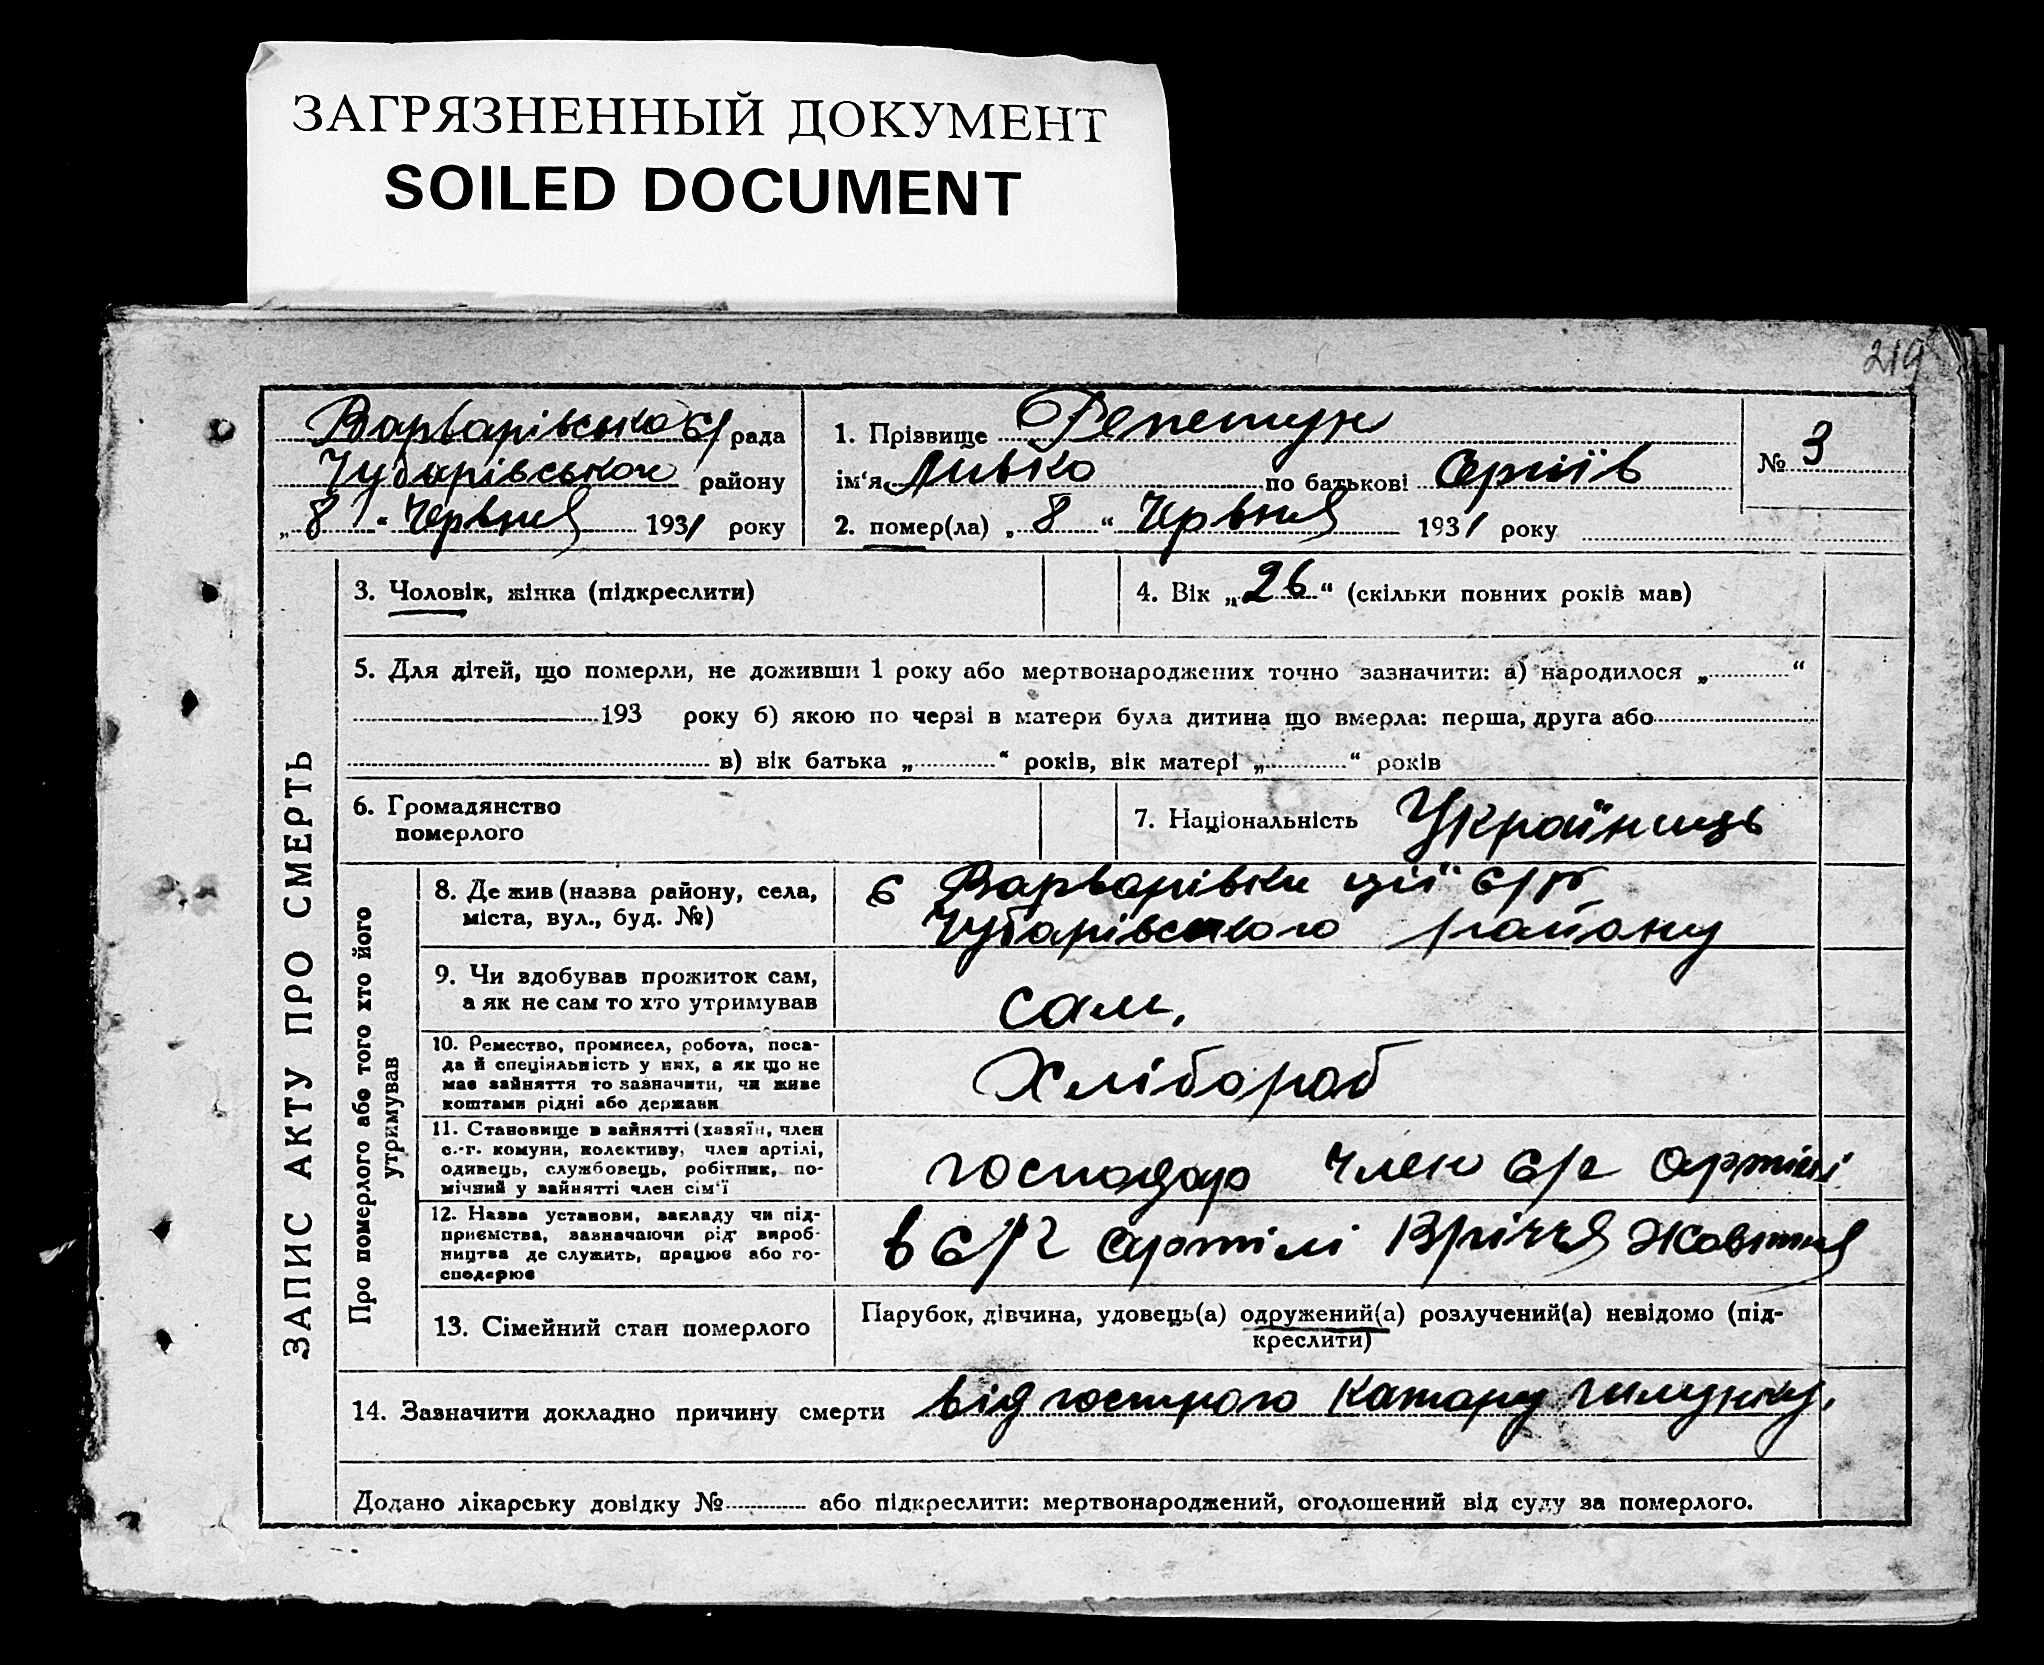 ЗАГРЯЗНЕННЫЙ ДОКУМЕНТ
SOILED DOCUMENT
219
Варварівсько с/рада
Чубарівського району
„8“ Червня 1931 року
1. Прізвище Репетун
ім‘я Ливко по батькові Сергіїв
2. помер(ла) „8“ Червня 1931 року
№ 3
ЗАПИС АКТУ ПРО СМЕРТЬ
3. Чоловік, жінка (підкреслити)
4. Вік „26“ (скільки повних років мав)
5. Для дітей, що померли, не доживши 1 року або мертвонароджених точно зазначити: а) народилося „ “
193 року б) якою по черзі в матери була дитина що вмерла: перша, друга або
в) вік батька „ “ років, вік матері „ “ років
6. Громадянство
померлого
7. Національність Українець
Про померлого або того хто його
утримував
8. Де жив (назва району, села,
міста, вул., буд. №)
с Варварівки ції с/р
Чубарівського району
9. Чи здобував прожиток сам,
а як не сам то хто утримував
сам,
10. Ремество, промисел, робота, поса-
да й спеціяльність у них, а як що не
мав зайняття то зазначити, чи живе
коштами рідні або держави
Хлібороб
11. Становище в зайнятті (хазяїн, член
с.-г. комуни, колективу, член артілі,
одивець, службовець, робітник, по-
мічний у зайнятті член сім‘ї
господар член с/г артілі
12. Назва установи, закладу чи під-
приємства, зазначаючи рід вироб-
ництва де служить, працює або го-
сподарює
в с/г артілі Жовтня
13. Сімейний стан померлого
Парубок, дівчина, удовець(а) одружений(а) розлучений(а) невідомо (під-
креслити)
14. Зазначити докладно причину смерти від гострого катару шлунку.
Додано лікарську довідку № або підкреслити: мертвонароджений, оголошений від суду за померлого.